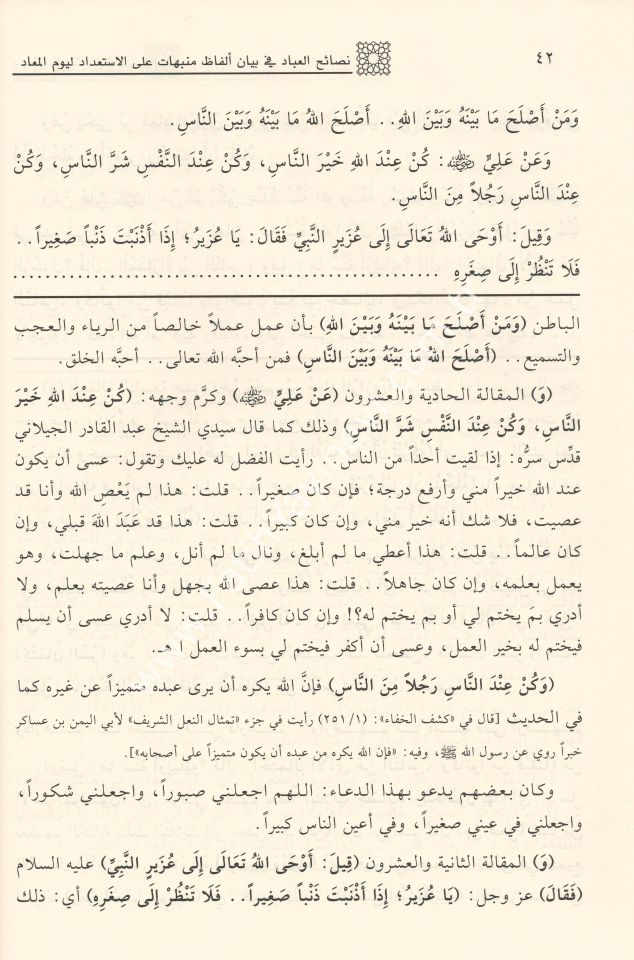 ٤٢
نصائح العباد في بيان ألفاظ منبهات على الاستعداد ليوم المعاد
وَمَنْ أَصْلَحَ مَا بَيْنَهُ وَبَيْنَ اللهِ.. أَصْلَحَ اللهُ مَا بَيْنَهُ وَبَيْنَ النَّاسِ.
وَعَنْ عَلِيٍّ ﷺ: كُنْ عِنْدَ اللهِ خَيْرَ النَّاسِ، وَكُنْ عِنْدَ النَّفْسِ شَرَّ النَّاسِ، وَكُنْ
عِنْدَ النَّاسِ رَجُلاً مِنَ النَّاسِ.
وَقِيلَ: أَوْحَى اللهُ تَعَالَى إِلَى عُزَيرٍ النَّبِيِّ فَقَالَ: يَا عُزَيرُ؛ إِذَا أَذْنَبْتَ ذَنْباً صَغِيراً..
فَلَا تَنْظُرْ إِلَى صِغَرِهِ ......................................................
الباطن (وَمَنْ أَصْلَحَ مَا بَيْنَهُ وَبَيْنَ اللهِ) بأن عمل عملاً خالصاً من الرياء والعجب
والتسميع.. (أَصْلَحَ اللهُ مَا بَيْنَهُ وَبَيْنَ النَّاسِ) فمن أحبَّه الله تعالى.. أحبَّه الخلق.
(وَ) المقالة الحادية والعشرون (عَنْ عَلِيٍّ ﷺ) وكرَّم وجهه: (كُنْ عِنْدَ اللهِ خَيْرَ
النَّاسِ، وَكُنْ عِنْدَ النَّفْسِ شَرَّ النَّاسِ) وذلك كما قال سيدي الشيخ عبد القادر الجيلاني
قدِّس سرُّه: إذا لقيت أحداً من الناس.. رأيت الفضل له عليك وتقول: عسى أن يكون
عند الله خيراً مني وأرفع درجة؛ فإن كان صغيراً.. قلت: هذا لم يَعْصِ الله وأنا قد
عصيت، فلا شك أنه خير مني، وإن كان كبيراً.. قلت: هذا قد عَبَدَ اللهَ قبلي، وإن
كان عالماً.. قلت: هذا أعطي ما لم أبلغ، ونال ما لم أنل، وعلم ما جهلت، وهو
يعمل بعلمه، وإن كان جاهلاً.. قلت: هذا عصى الله بجهل وأنا عصيته بعلم، ولا
أدري بمَ يختم لي أو بم يختم له؟! وإن كان كافراً.. قلت: لا أدري عسى أن يسلم
فيختم له بخير العمل، وعسى أن أكفر فيختم لي بسوء العمل اهـ.
(وَكُنْ عِنْدَ النَّاسِ رَجُلاً مِنَ النَّاسِ) فإنَّ الله يكره أن يرى عبده متميزاً عن غيره كما
في الحديث [قال في «كشف الخفاء»: (٢٥١/١) رأيت في جزء «تمثال النعل الشريف» لأبي اليمن بن عساكر
خبراً روي عن رسول الله ﷺ، وفيه: «فإن الله يكره من عبده أن يكون متميزاً على أصحابه»].
وكان بعضهم يدعو بهذا الدعاء: اللهم اجعلني صبوراً، واجعلني شكوراً،
واجعلني في عيني صغيراً، وفي أعين الناس كبيراً.
(وَ) المقالة الثانية والعشرون (قِيلَ: أَوْحَى اللهُ تَعَالَى إِلَى عُزَيرٍ النَّبِيِّ) عليه السلام
(فَقَالَ) عز وجل: (يَا عُزَيرُ؛ إِذَا أَذْنَبْتَ ذَنْباً صَغِيراً.. فَلَا تَنْظُرْ إِلَى صِغَرِهِ) أي: ذلك